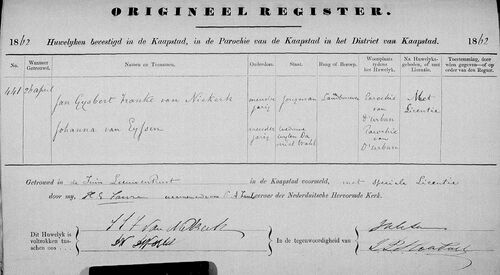 ORIGINEEL REGISTER.
1862 Huwelyken bevestigd in de Kaapstad, in de Parochie van de Kaapstad in het District van Kaapstad. 1862
No. Wanneer Getrouwd. Namen en Toenamen. Ouderdom. Staat. Rang of Beroep. Woonplaats tydens het Huwelyk. Na Huwelyks-geboden, of met Licentie. Toestemming, door wien gegeven—of op order van den Regter.
441 Jan Gysbert Franke van Niekerk meerder jarig Jongman Landbouwer Parochie van D'urban Met Licentie
Johanna van Eyssen meerder jarig weduwe wylen Da niel Wahl Parochie van D'urban
Getrouwd in de Tuin Leeuwenhof in de Kaapstad voormeld, met speciale Licentie
door my, Leeraar der Nederduitsche Hervormde Kerk.
Dit Huwelyk is voltrokken tusschen ons
In de tegenwoordigheid van